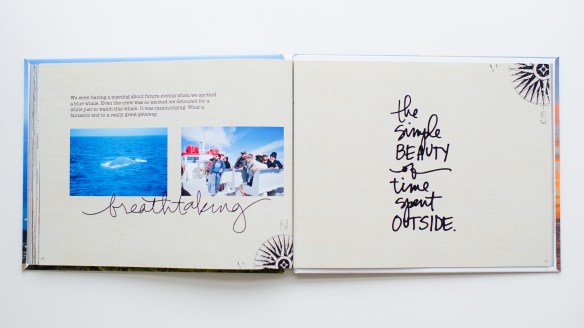 We were having a meeting about future events when we spotted
a blue whale. Even the crew was so excited we detoured for a
while just to watch this whale. It was mesmorizing. What a
fantastic end to a really great getaway.
breathtaking
the
simple
BEAUTY
of
time
spent
OUTSIDE.